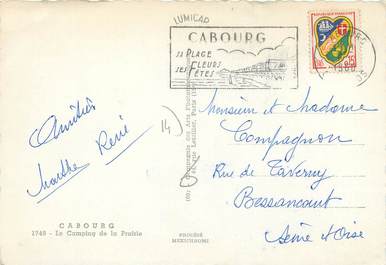 LUMICAP
CABOURG
SA PLAGE
SES FLEURS
FÊTES
RÉPUBLIQUE FRANÇAISE
0,15
Amitiés
Marthe René
14)
Monsieur et Madame
Compagnon
Rue de Taverny
Bessancourt
Seine et Oise
CABOURG
1748 - Le Camping de la Prairie
PROCÉDÉ
MEXICHROME